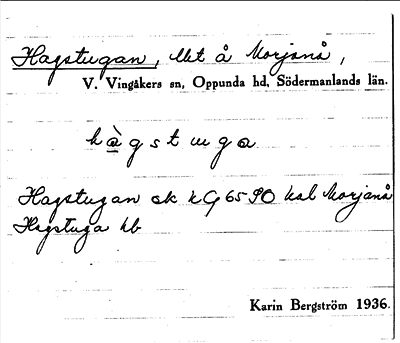 Hagstugan, lht å Morjanå,
V. Vingåkers sn, Oppunda hd, Södermanlands län.
hàgstuga
Hagstugan ek kG 65 SO kal Morjanå
Hagstuga hb
Karin Bergström 1936.